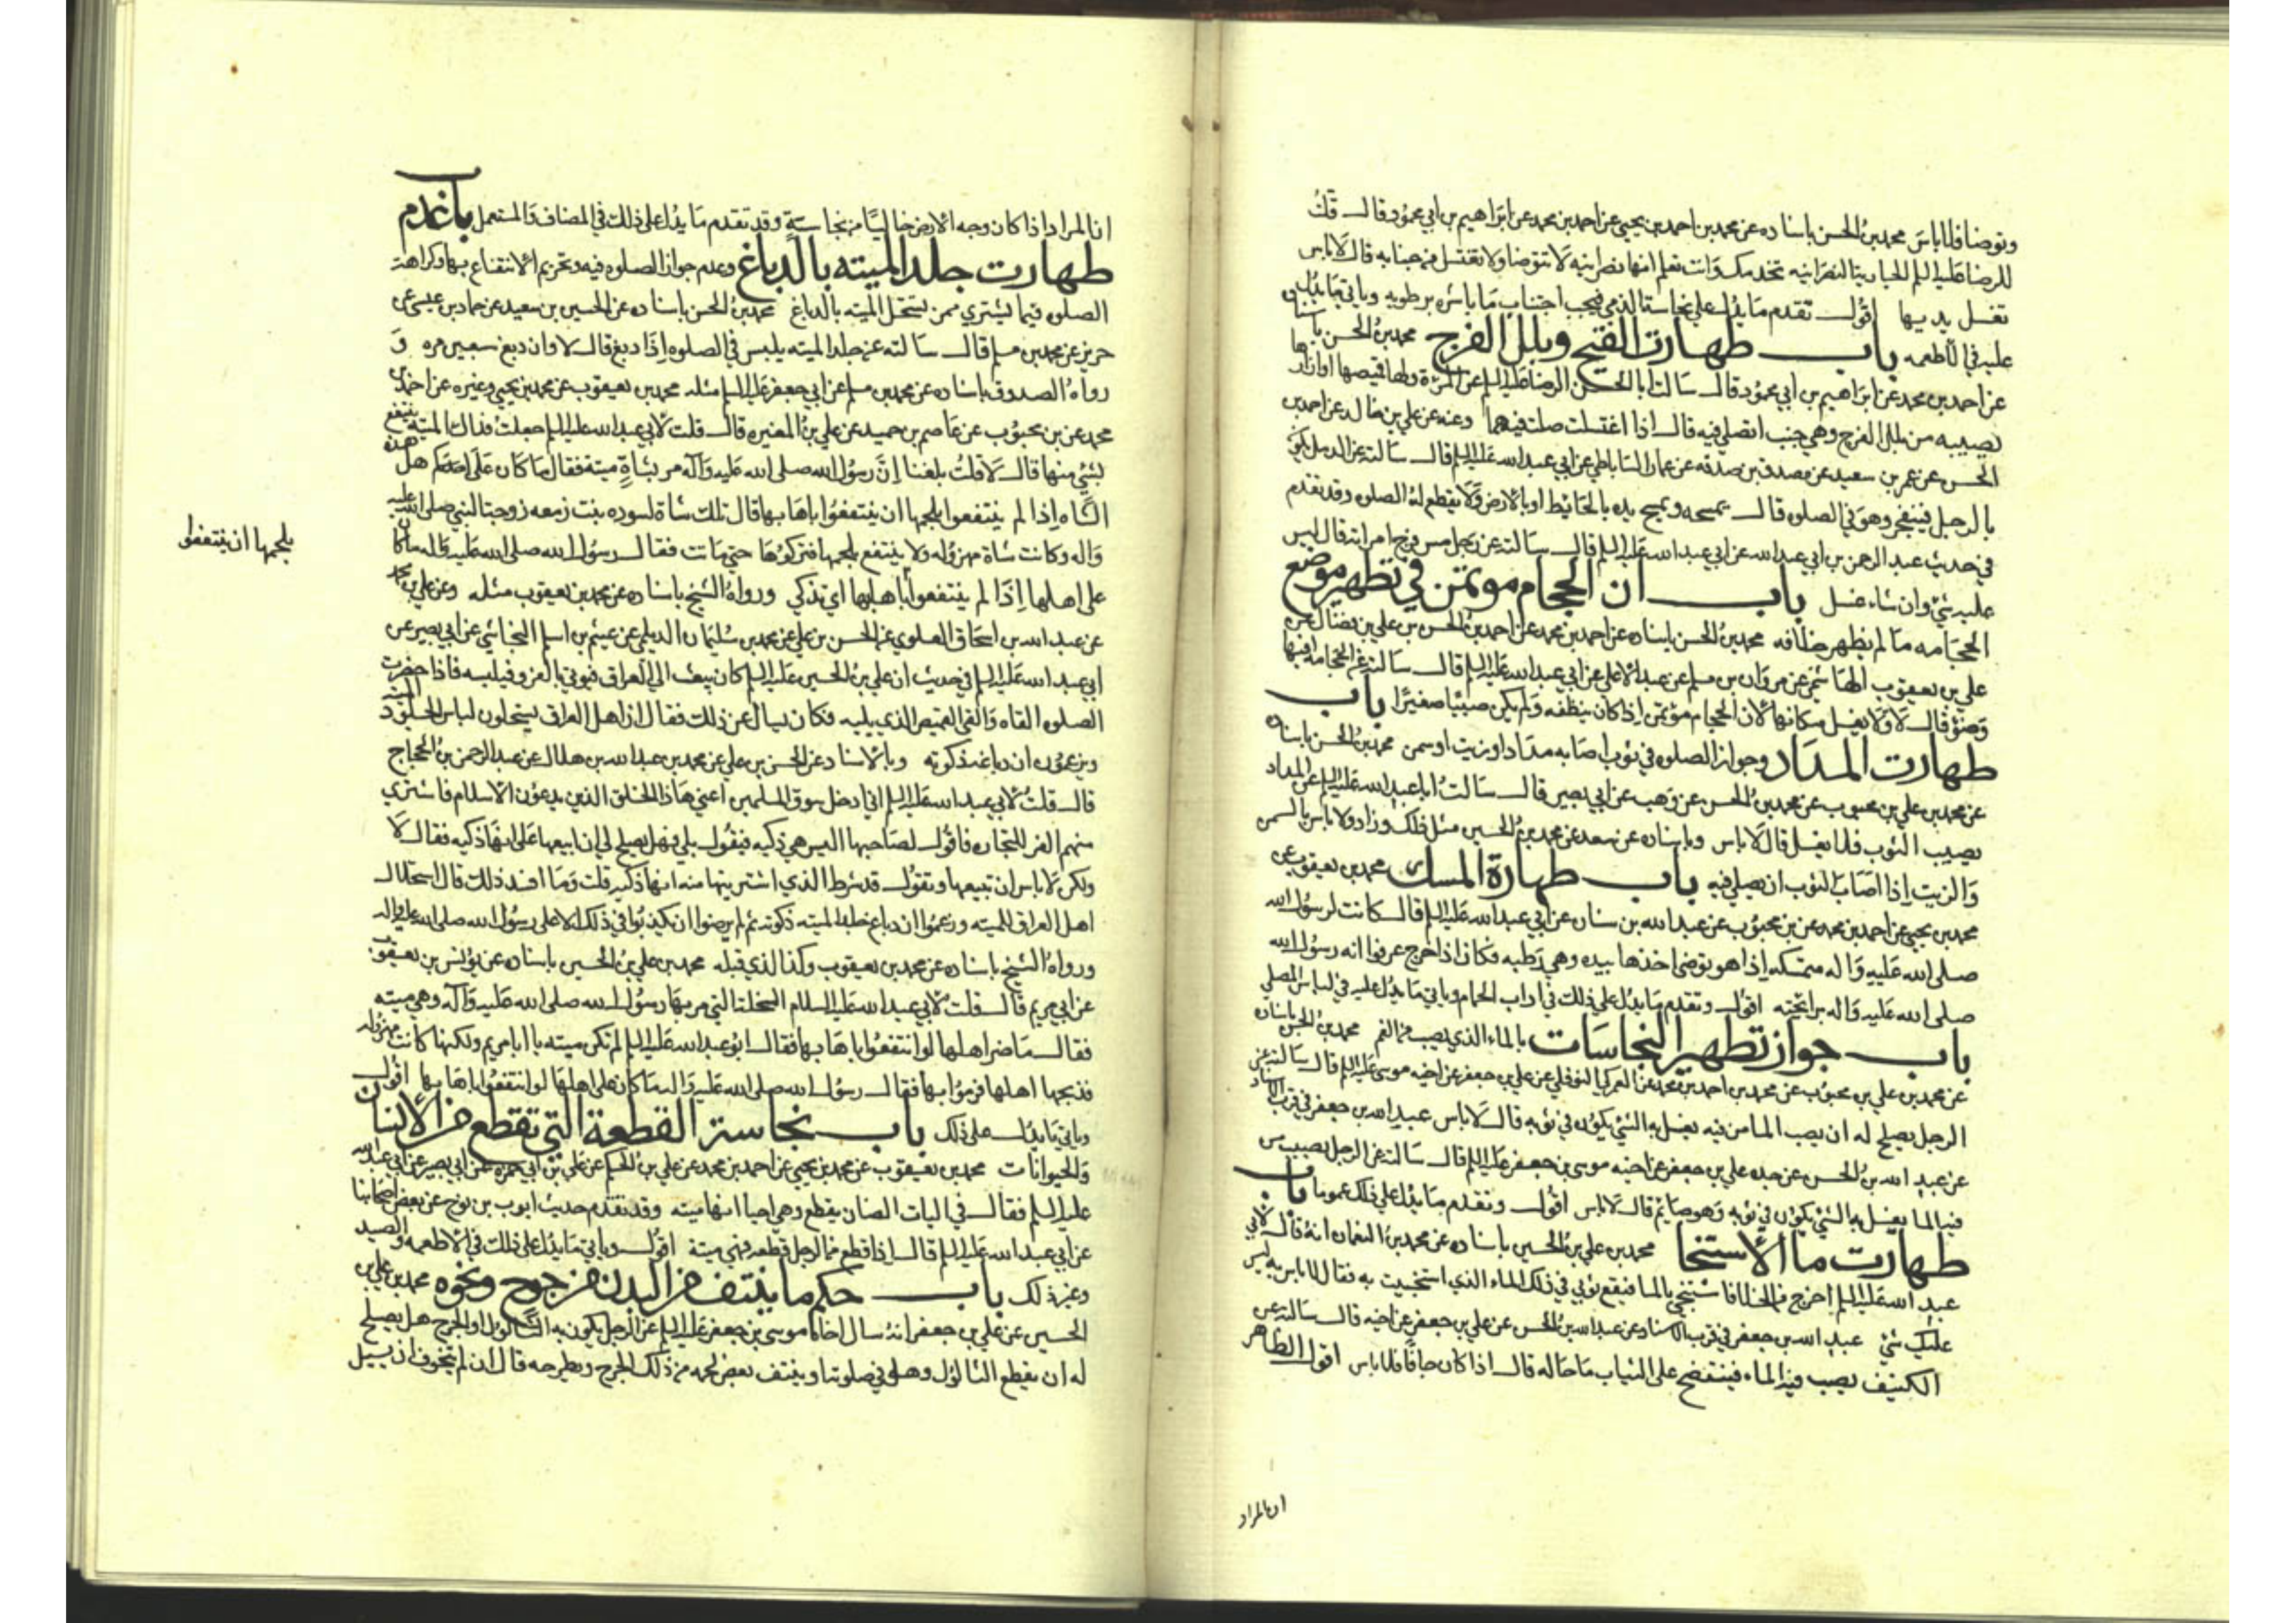 وتوضا فلا باس محمد بن الحسن باسناده عن محمد بن احمد بن يحيى عن احمد بن محمد عن ابراهيم بن ابي محمود قال قلت
للرضا عليه السلم الجاريه النصرانيه تخدمك وانت تعلم انها نصرانيه لا تتوضا ولا تغتسل من جنابه قال لا باس
تغسل يديها اقول تقدم ما يدل على نجاسة الذمي فيجب اجتناب ما باشره برطوبه وياتي ما يدل
عليه في الاطعمه باب طهارت القيح وبلل الفرج محمد بن الحسن باسناده
عن احمد بن محمد عن ابراهيم بن ابي محمود قال سالت ابا الحسن الرضا عليه السلم عن المرٔة ولها قميصها او ازارها
يصيبه من بلل الفرج وهي جنب اتصلي فيه قال اذا اغتسلت صلت فيهما وعنه عن علي بن خالد عن احمد بن
الحسن عن عمر بن سعيد عن مصدق بن صدقه عن عمار الساباطي عن ابي عبد الله عليه السلم قال سالته عن الدمل يكون
بالرجل فينفجر وهو في الصلوه قال يمسحه ويمسح يده بالحائيط او بالارض ولا يقطع له الصلوه وقد تقدم
في حديث عبد الرحمن بن ابي عبد الله عن ابي عبد الله عليه السلم قال سالته عن رجل مس فرج امراته قال ليس
عليه شئ وان شاء غسل باب ان الحجام موتمن في تطهير موضع
الحجامه ما لم يظهر خلافه محمد بن الحسن باسناده عن احمد بن محمد عن احمد بن الحسن بن علي بن فضال عن
علي بن يعقوب الهاشمي عن مروان بن مسلم عن عبد الاعلى عن ابي عبد الله عليه السلم قال سالته عن الحجامه افيها
وضوٴ قال لا ولا يغسل مكانها لان الحجام موٴتمن اذا كان ينظفه ولم يكن صبيًا صغيرًا باب
طهارت المداد وجواز الصلوه في ثوب اصابه مداد او زيت او سمن محمد بن الحسن باسناده
عن محمد بن علي بن محبوب عن محمد بن الحسن عن وهب عن ابي بصير قال سالت ابا عبد الله عليه السلم عن المداد
يصيب الثوب فلا يغسل قال لا باس وباسناده عن سعد عن محمد بن الحسين مثل ذلك وزاد ولا باس بالسمن
والزيت اذا اصاب الثوب ان يصلي فيه باب طهارة المسك محمد بن يعقوب عن
محمد بن يحيى عن احمد بن محمد عن بن محبوب عن عبد الله بن سنان عن ابي عبد الله عليه السلم قال كانت لرسول الله
صلى الله عليه واله ممسكه اذا هو توضى اخذها بيده وهي رطبه فكان اذا خرج عرفوا انه رسول الله
صلى الله عليه واله برايحته اقول وتقدم ما يدل على ذلك في اداب الحمام وياتي ما يدل عليه في لباس المصلي
باب جواز تطهير النجاسات بالماء الذي يصب من الفم محمد بن الحسن باسناده
عن محمد بن علي بن محبوب عن محمد بن احمد بن محمد عن العمركي النوفلي عن علي بن جعفر عن اخيه موسى عليه السلم قال سالته عن
الرجل يصلح له ان يصب الما من فيه يغسل به الشئ يكون في ثوبه قال لا باس عبد الله بن جعفر في قرب الاسناد
عن عبد الله بن الحسن عن جده علي بن جعفر عن اخيه موسى بن جعفر عليه السلم قال سالته عن الرجل يصيب من
فيه الما يغسل به الشئ يكون في ثوبه وهو صايم قال لا باس اقول وتقدم ما يدل على ذلك عموما باب
طهارت ما الاستنجا محمد بن علي بن الحسين باسناده عن محمد بن النعمان انه قال لابي
عبد الله عليه السلم اخرج من الخلا فاستنجي بالما فيقع ثوبي في ذلك الماء الذي استنجيت به فقال لا باس به ليس
عليك شئ عبد الله بن جعفر في قرب الاسناد عن عبد الله بن الحسن عن علي بن جعفر عن اخيه قال سالته عن
الكنيف يصب فيه الماء فينتضح على الثياب ما حاله قال اذا كان جافًا فلا باس اقول الظاهر
ان المراد
ان المراد اذا كان وجه الارض خاليًا من نجاسةٍ وقد تقدم ما يدل على ذلك في المضاف والمستعمل باب عدم
طهارت جلد الميته بالدباغ وعدم جواز الصلوه فيه وتحريم الانتفاع بها وكراهة
الصلوه فيما يشتري ممن يستحل الميته بالدباغ محمد بن الحسن باسناده عن الحسين بن سعيد عن حماد بن عيسى عن
حريز عن محمد بن مسلم قال سالته عن جلد الميته يلبس في الصلوه اذا دبغ قال لا وان دبغ سبعين مره و
رواه الصدوق باسناده عن محمد بن مسلم عن ابي جعفر عليه السلم مثله محمد بن يعقوب عن محمد بن يحيى وغيره عن احمد بن
محمد عن بن محبوب عن عاصم بن حميد عن علي بن المغيره قال قلت لابي عبد الله عليه السلم جعلت فداك الميته ينتفع
بشئ منها قال لا قلت بلغنا ان رسول الله صلى الله عليه وآله مر بشاةٍ ميته فقال ما كان على اهل هذه
الشاه اذا لم ينتفعوا بلحمها ان ينتفعوا باهابها قال تلك شاة لسوده بنت زمعه زوجة النبي صلى الله عليه
واله وكانت شاة مهزوله ولا ينتفع بلحمها فتركوها حتى ماتت فقال رسول الله صلى الله عليه واله ما كان
على اهلها اذا لم ينتفعوا باهابها اي تذكى ورواه الشيخ باسناده عن محمد بن يعقوب مثله وعن علي بن محمد
بلحمها ان ينتفعوا
عن عبد الله بن اسحاق العلوي عن الحسن بن علي عن محمد بن سليمان الديلمي عن عيثم بن اسلم النجاشي عن ابي بصير عن
ابي عبد الله عليه السلم في حديث ان علي بن الحسين عليه السلم كان يبعث الى العراق فيوتي بالفرو فيلبسه فاذا حضرت
الصلوه القاه والقى القميص الذي يليه فكان يسال عن ذلك فقال ان اهل العراق يستحلون لباس الجلود الميته
ويزعمون ان دباغه ذكوته وبالاسناد عن الحسن بن علي عن محمد بن عبد الله بن هلال عن عبد الرحمن بن الحجاج
قال قلت لابي عبد الله عليه السلم اني ادخل سوق المسلمين اعني هاذا الخلق الذين يدعون الاسلام فاشتري
منهم الفرا للتجاره فاقول لصاحبها اليس هي ذكيه فيقول بلى فهل يصلح لي ان ابيعها على انها ذكيه فقال لا
ولكن لا باس ان تبيعها وتقول قد شرط الذي اشتريتها منه انها ذكيه قلت وما افسد ذلك قال استحلال
اهل العراق للميته وزعموا ان دباغ جلد الميته ذكوته ثم لم يرضوا ان يكذبوا في ذلك الا على رسول الله صلى الله عليه واله
ورواه الشيخ باسناده عن محمد بن يعقوب وكذا الذي قبله محمد بن علي بن الحسين باسناده عن يونس بن يعقوب
عن ابي مريم قال قلت لابي عبد الله عليه السلام السخلة التي مر بها رسول الله صلى الله عليه وآله وهي ميته
فقال ما ضر اهلها لو انتفعوا باهابها فقال ابو عبد الله عليه السلم لم تكن ميته يا ابا مريم ولكنها كانت مهزوله
فذبحها اهلها فرموا بها فقال رسول الله صلى الله عليه واله ما كان على اهلها لو انتفعوا باهابها اقول
وياتي ما يدل على ذلك باب نجاسة القطعة التي تقطع من الانسان
والحيوانات محمد بن يعقوب عن محمد بن يحيى عن احمد بن محمد عن علي بن الحكم عن علي بن ابي حمزه عن ابي بصير عن ابي عبد الله
عليه السلم فقال في اليات الضان يقطع وهي احيا انها ميته وقد تقدم حديث ايوب بن نوح عن بعض اصحابنا
عن ابي عبد الله عليه السلم قال اذا قطع من الرجل قطعه فهي ميتة اقول وياتي ما يدل على ذلك في الاطعمه والصيد
وغير ذلك باب حكم ما ينتف من البدن من جروح ونحوه محمد بن علي بن
الحسين عن علي بن جعفر انه سال اخاه موسى بن جعفر عليه السلم عن الرجل يكون به الثالول او الجرح هل يصلح
له ان يقطع الثالول وهو في صلوته او ينتف بعض لحمه من ذلك الجرح ويطرحه قال ان لم يتخوف ان يسيل